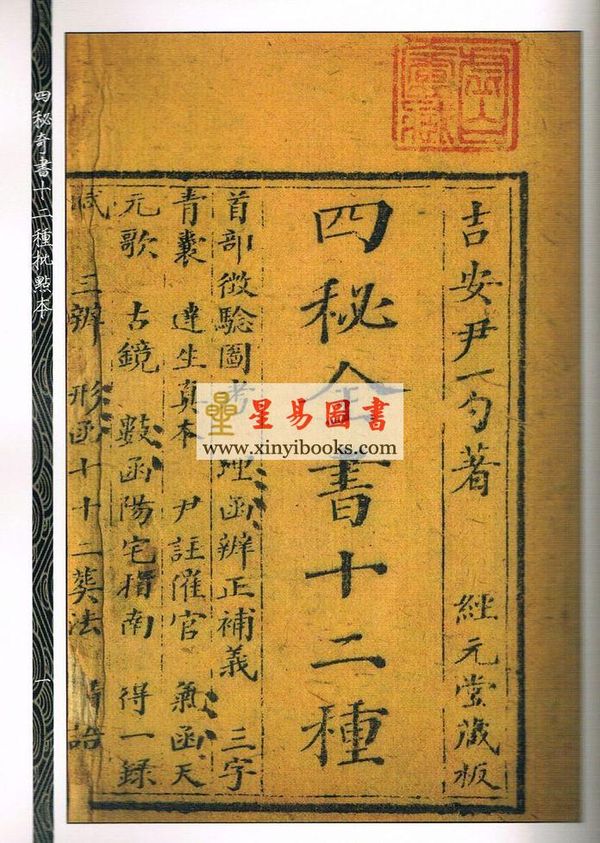 吉安尹一勺著 經元堂藏板
四秘全書十二種
首部徵驗圖考 理函辨正補義 三字
青囊 達生真本 尹註催官 氣函天
元歌 古鏡 數函陽宅指南 得一錄
三辨 形函十十二葬法
星易圖書
www.xinyibooks.com
四秘奇書十二種批點本
一